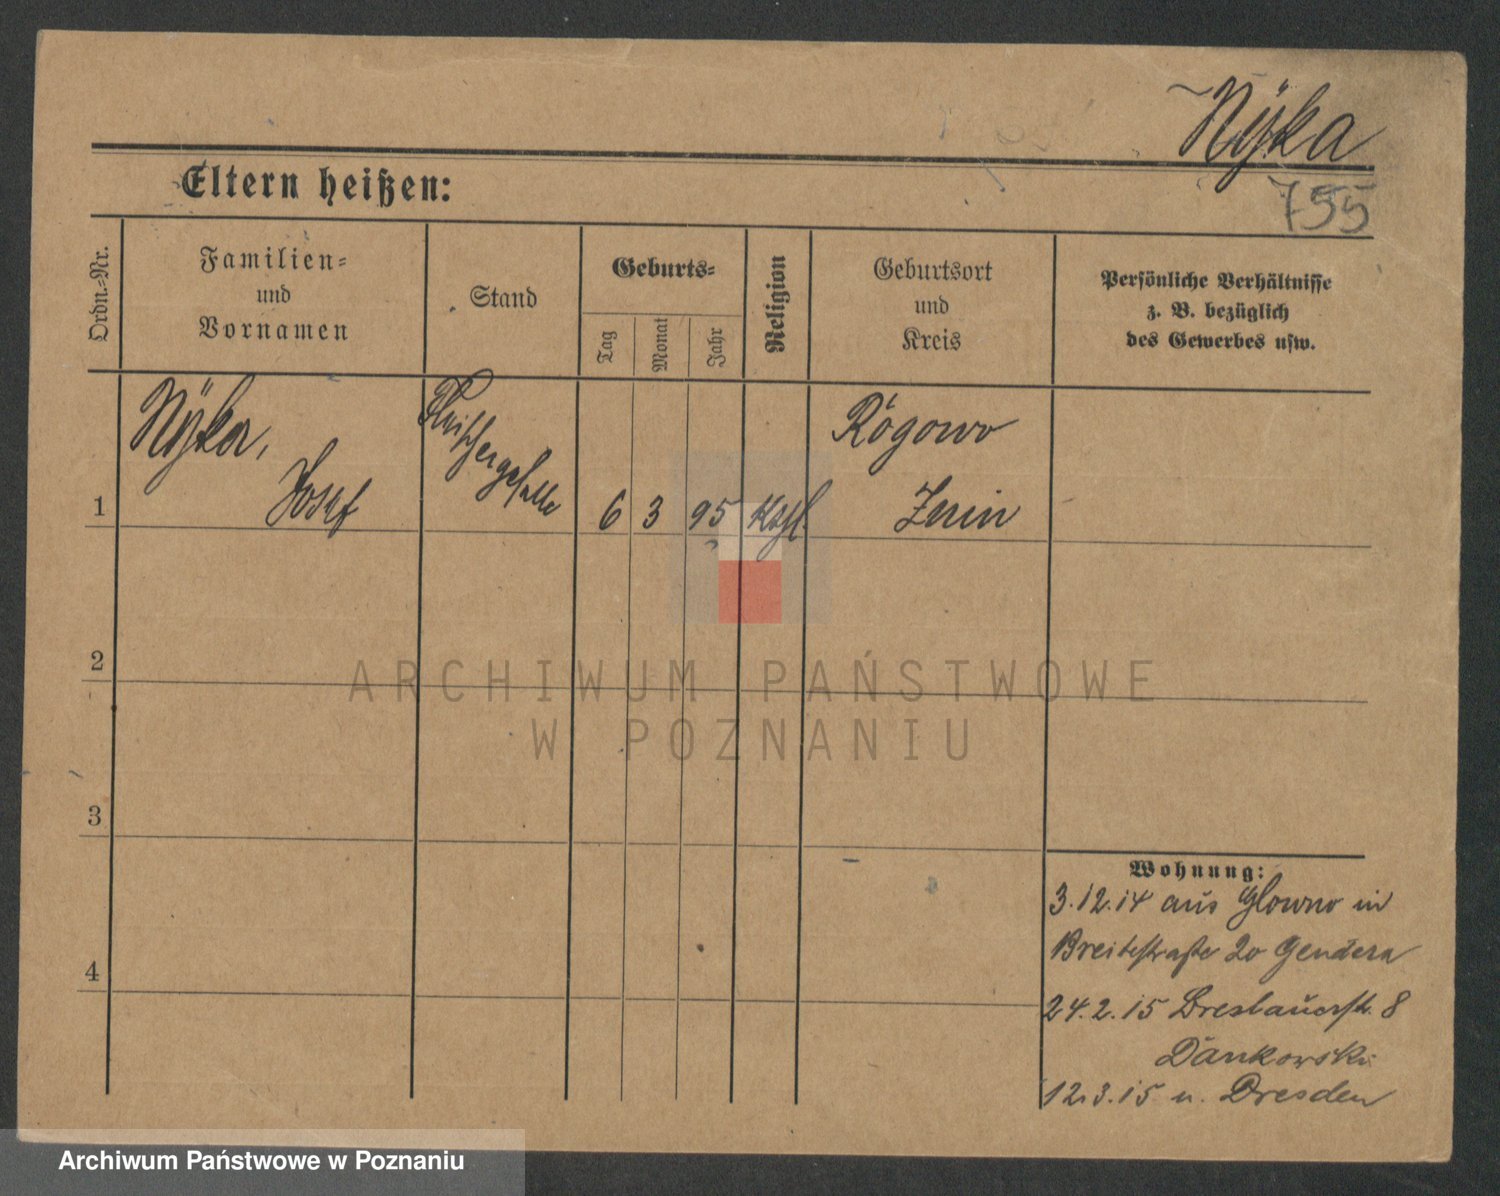 Nÿka
755
Eltern heißen:
Ordn.-Nr.
Familien-
und
Vornamen
Stand
Geburts-
Tag
Monat
Jahr
Religion
Geburtsort
und
Kreis
Persönliche Verhältnisse
z. B. bezüglich
des Gewerbes usw.
1
Nÿka,
Josef
Fleischergeselle
6 3 95 Kath.
Rogowo
Znin
2
3
4
Wohnung:
3.12.14 aus Glowno in
Breitestraße 20 Gendera
24.2.15 Breslauerstr. 8
Dankowski
12.3.15 n. Dresden
ARCHIWUM PAŃSTWOWE
W POZNANIU
Archiwum Państwowe w Poznaniu